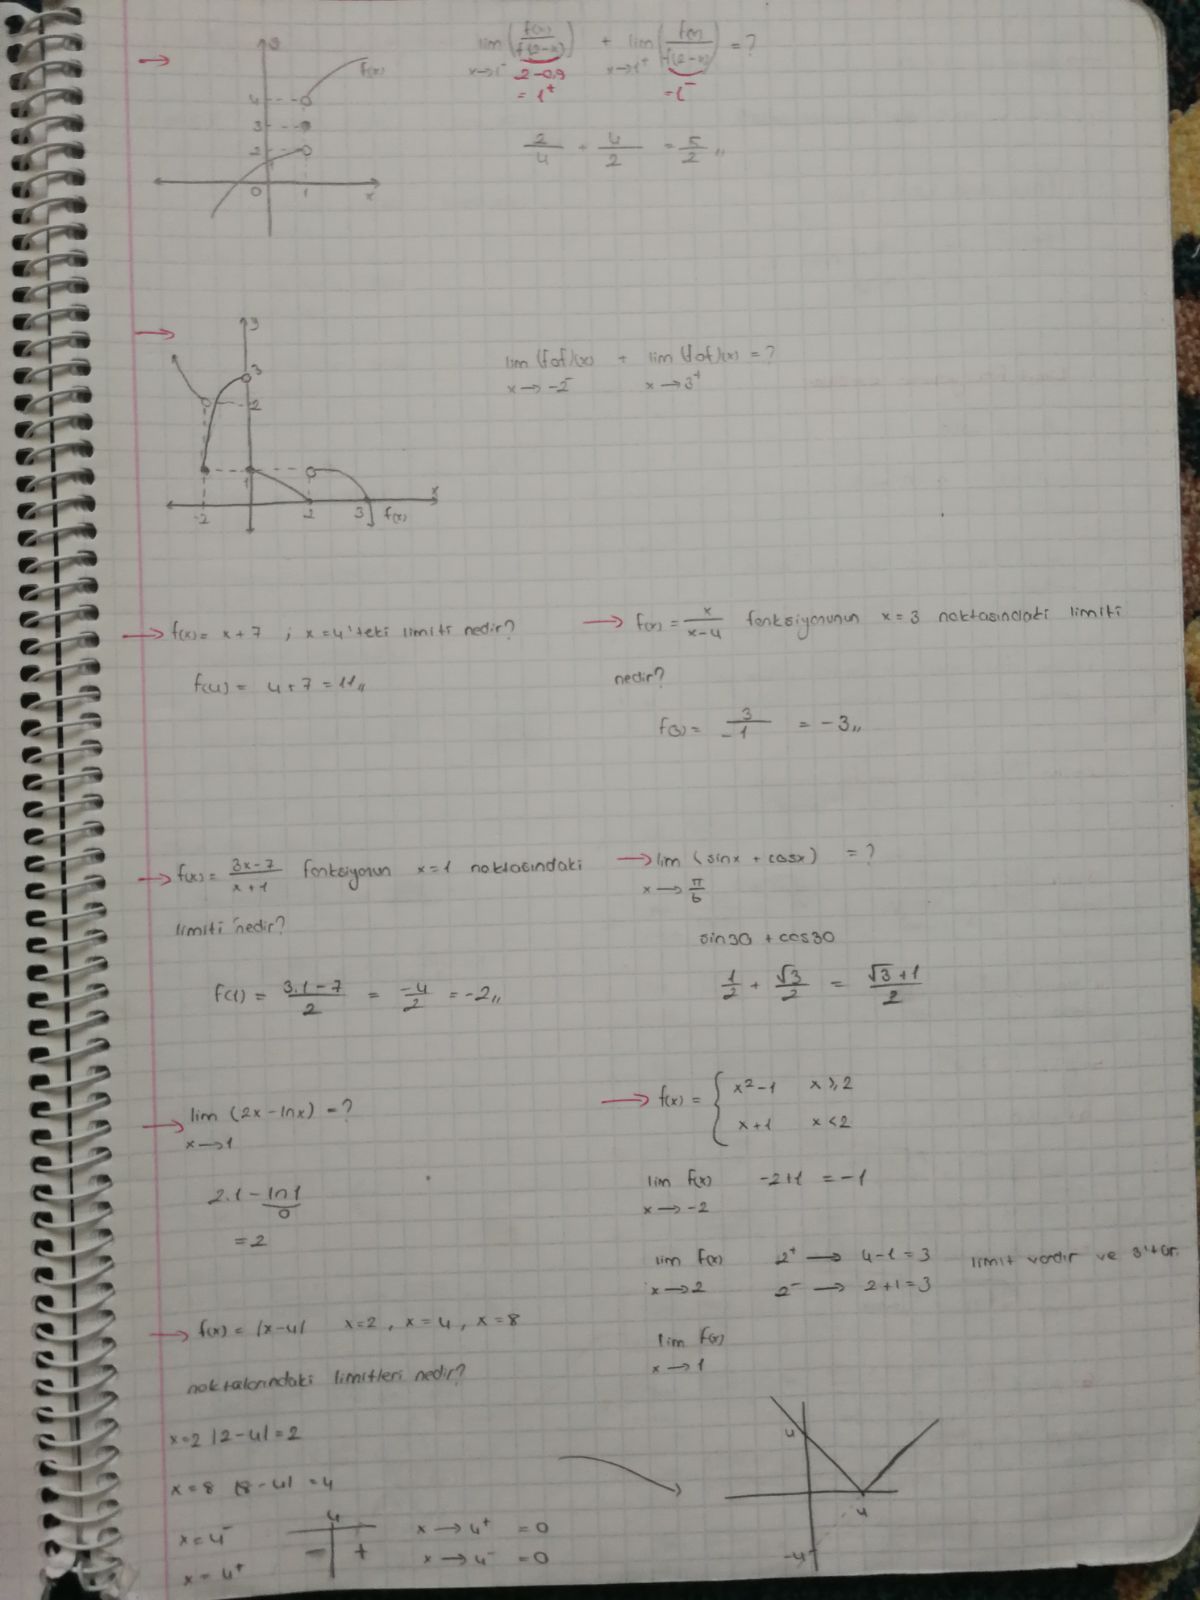 lim (f(x)/f(2-x)) + lim (f(x)/f(2-x)) = ?
x→1⁻ x→1⁺
2-0,9
= 1⁺ = 1⁻
2/4 + 4/2 = 5/2 //
f(x)
4
3
2
1
0 1 x
lim (fof)(x) + lim (fof)(x) = ?
x→-2⁻ x→3⁺
3
2
1
x
-2 2 3 f(x)
→ f(x) = x+7 ; x=4'teki limiti nedir?
f(4) = 4+7 = 11 //
→ f(x) = x/(x-4) fonksiyonunun x=3 noktasındaki limiti
nedir?
f(3) = 3/-1 = -3 //
→ f(x) = (3x-7)/(x+1) fonksiyonun x=1 noktasındaki
limiti nedir?
f(1) = (3.1-7)/2 = -4/2 = -2 //
→ lim (sinx + cosx) = ?
x→π/6
sin30 + cos30
1/2 + √3/2 = (√3+1)/2
→ lim (2x-lnx) = ?
x→1
2.1 - ln1
0
= 2
→ f(x) = { x²-1 x≥2
x+1 x<2
lim f(x) -2+1 = -1
x→-2
lim f(x) 2⁺ → 4-1=3 limit vardır ve 3'tür.
x→2 2⁻ → 2+1=3
lim f(x)
x→1
→ f(x) = |x-4| x=2, x=4, x=8
noktalarındaki limitleri nedir?
x=2 |2-4| = 2
x=8 |8-4| = 4
x=4⁻ 4 x→4⁺ = 0
x=4⁺ - + x→4⁻ = 0
4
4
-4